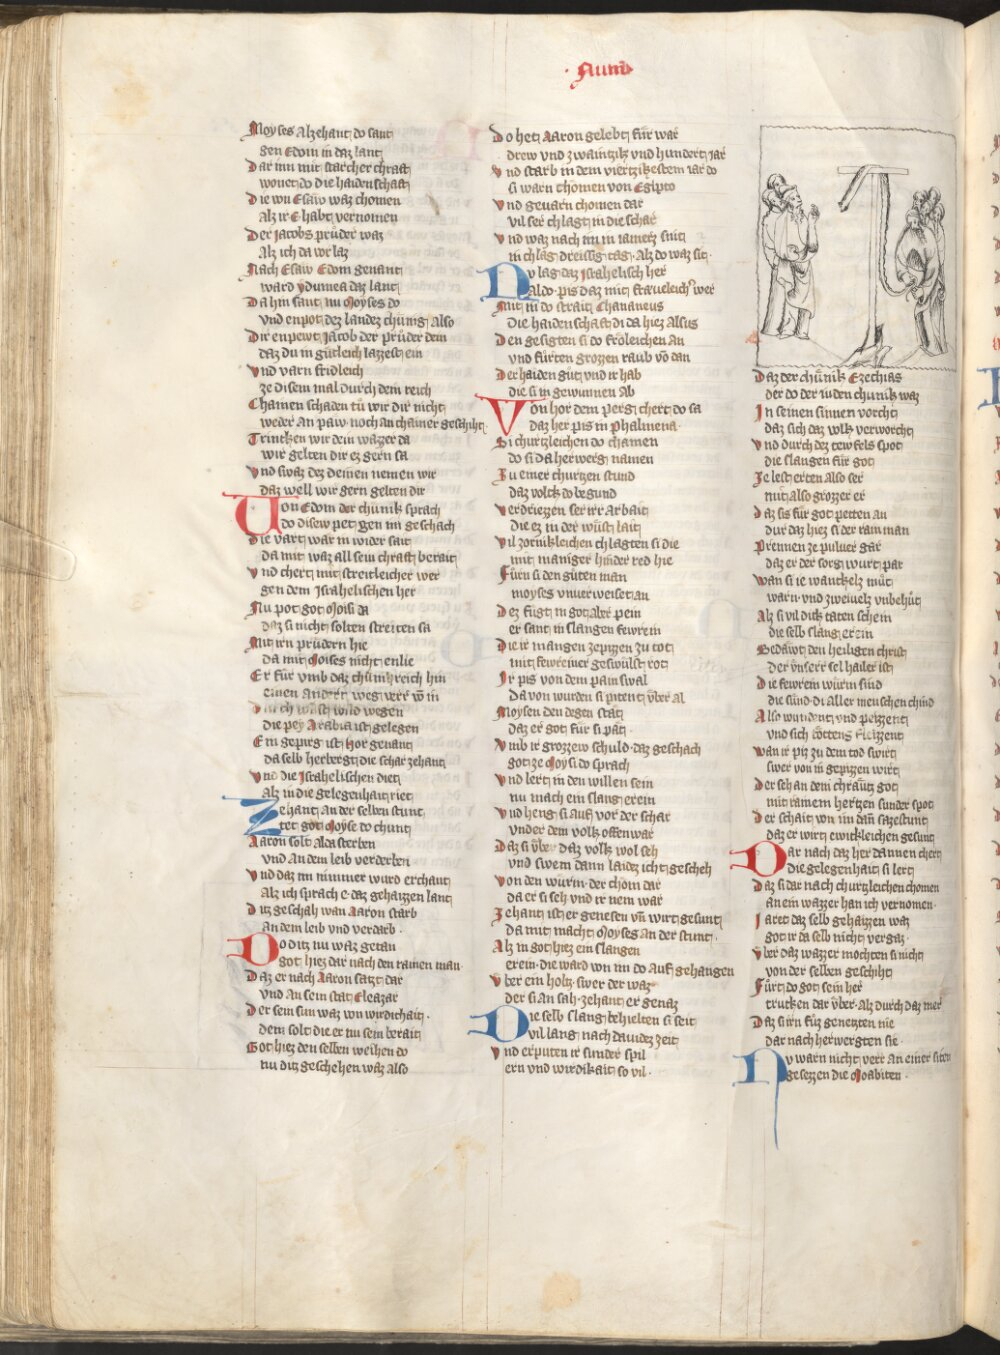 Numeri
Moyses alzehant do sant
gen Edom in daz lant
Dar inn mit starcher chraft
wonet do die haidenschaft
Die von Esaw waz chomen
Alz ir E habt vernomen
Der Jacobs průder waz
Alz ich da vor laz
Nach Esaw Edom genant
ward ydumea daz lant
Da hin sant nu Moyses do
vnd enpot dez landez chünig also
Dir enpewt Jacob der průder dein
daz du in gůtleich lazzest ein
vnd varn fridleich
ze disem mal durch dein reich
Chainen schaden tů wir dir nicht
weder an paw noch an chainer geschiht
Trinkchen wir dein wazzer da
wir gelten dir ez gern sa
vnd swaz dez deinen nemen wir
daz well wir gern gelten dir
Von Edom der chünik sprach
do disew pet gen im geschach
Die vart war in wider sait
da mit waz all sein chraft berait
vnd chert mit streitleicher wer
gen dem Israhelischen her
Nu pot got Moisi da
daz si nicht solten streiten sa
Mit irn prüdern hie
da mit Moises nicht enlie
Er für vmb daz chünikreich hin
einen andern weg verr von in
durch wüst wild wegen
die pey Arabia ist gelegen
Ein gepirg ist hor genant
da selb herbergt die schar zehant
vnd die Israhelischen diet
alz in die gelegenhait riet
Zehant an der selben stunt
tet got Moyse do chunt
Aaron solt alda sterben
vnd an dem leib verderben
vnd daz im nimmer wurd erchant
Alz ich sprach e daz gehaizzen lant
Ditz geschah wan Aaron starb
an dem leib vnd verdarb
Do ditz nu waz getan
got hiez dar nach den rainen man
Daz er nach Aaron satzt dar
vnd an sein stat Eleazar
Der sein sun waz von wirdichait
dem solt die er nu sein berait
Got hiez den selben weihen do
nu ditz geschehen waz also
Do het Aaron gelebt für war
drew vnd zwaintzik vnd hundert jar
vnd starb in dem viertzikestem iar do
si warn chomen von Egipto
vnd gevarn chomen dar
vil ser chlagt in die schar
vnd waz nach im in iamerz snit
in chlag dreissig tag alz do waz sit
Nv lag daz Israhelisch her
aldo pis daz mit fräveleicher wer
Mit in do strait Chananeus
die haidenschaft di da hiez alsus
Den gesigten si do fröleichen an
vnd fůrten grozzen raub von dan
Der haiden gůt vnd ir hab
die si in gewunnen ab
Von hor dem perg chert do sa
daz her pis in Phalmena
Si churtzleichen do chamen
do si da herwerg namen
In einer churtzen stund
daz volck do begund
verdriezzen ser irr arbait
die ez in der wüst lait
vil zornikleichen chlagten si die
mit maniger hinder red hie
Fürn si den gůten man
moyses vnuerweiset an
Dez fůgt in got aber pein
er sant in slangen fewrein
Die ir mangen zepizzen zu tot
mit fewreiner geswulst rot
Ir pis von dem pain swal
da von wurden si piten vber al
Moysen den degen stat
daz er got für si pat
vmb ir grozzew schuld daz geschach
got ze Moysi do sprach
vnd lert in den willen sein
nu mach ein slang erein
vnd heng si auf vor der schar
vnder dem volk offenwar
Daz si vber daz volk wol seh
vnd swem dann laidez icht gescheh
von den würm der chom dar
da er si seh vnd ir nem war
Zehant ist er genesen vnd wirt gesunt
da mit macht Moyses an der stunt
Alz in got hiez ein slangen
erein die ward von im do auf gehangen
vber ein holtz swer der waz
der si an sah zehant er genaz
Die selb slang behielten si seit
vil lang nach dauidez zeit
vnd erputen ir sunder spil
ern vnd wirdikait so vil
Daz der chünik Ezechias
der do der iuden chunik waz
In seinen sinnen vorcht
daz sich daz volk verworcht
vnd durch dez tewfels spot
die slangen für got
Ie lest erten also ser
mit also grozzer er
Daz sis für got petten an
dur daz hiez si der rain man
Prennen ze puluer gar
daz er der sorg wurt par
wan si ie wanckelz můt
warn vnd zweiuelz vnbehůt
Alz si vil dick taten schein
die selb slang erein
Bedäwt den heiligen christ
der vnserr sel hailer ist
Die fewrein würm sind
die sünd di aller menschen chind
Also wundent vnd peizzent
vnd sich tottens fleizzent
wan ir piz zu dem tod swirt
swer von in gepizzen wirt
Der seh an dem chräutz got
mit rainem hertzen sunder spot
Der schait von im dann sa zestunt
daz er wirt ewickleichen gesunt
Dar nach daz her dannen chert
die gelegenhait si lert
Daz si dar nach churtzleichen chomen
an ein wazzer han ich vernomen
Jaret daz selb gehaizzen waz
got ir da selb nicht vergaz
vber daz wazzer mochten si nicht
von der selben geschiht
Fürt do got sein her
trucken dar vber alz durch daz mer
Daz si irn fůz genetzten nie
dar nach herwergten sie
Nv warn nicht verr an einer siten
gesezzen die Moabiten